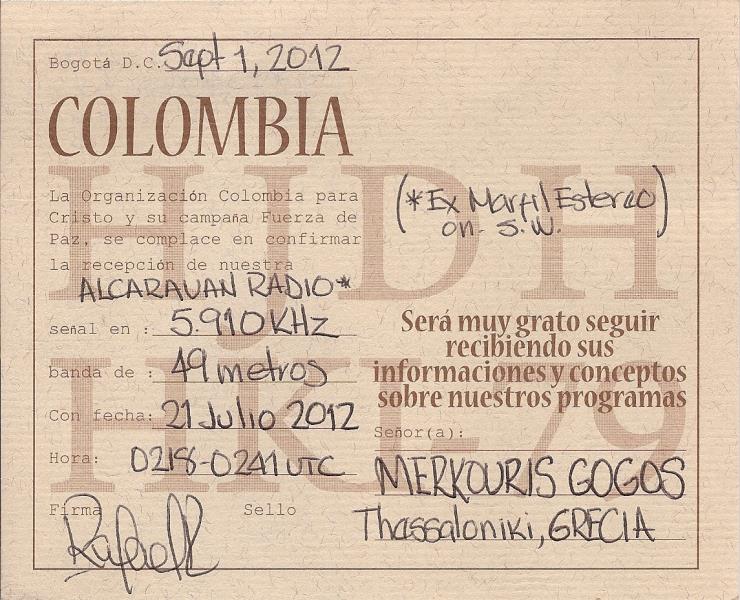 Bogotá D.C. Sept 1, 2012
COLOMBIA
HJDH
HKI-79
La Organización Colombia para
Cristo y su campaña Fuerza de
Paz, se complace en confirmar
la recepción de nuestra
ALCARAVAN RADIO*
señal en : 5.910 KHz
banda de : 49 metros
Con fecha: 21 Julio 2012
Hora: 0218-0241 UTC
Firma Sello
Rafael
(*Ex Marfil Estereo)
on S.W.
Será muy grato seguir
recibiendo sus
informaciones y conceptos
sobre nuestros programas
Señor(a):
MERKOURIS GOGOS
Thassaloniki, GRECIA